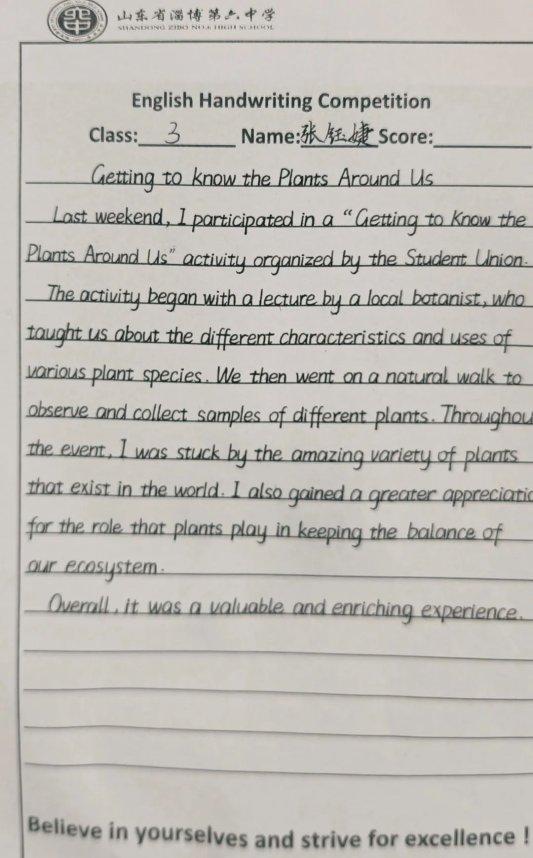 山东省淄博第六中学
SHANDONG ZIBO NO.6 HIGH SCHOOL
English Handwriting Competition
Class: 3 Name: 张钰婕 Score:
Getting to know the Plants Around Us
Last weekend, I participated in a “Getting to Know the
Plants Around Us” activity organized by the Student Union.
The activity began with a lecture by a local botanist, who
taught us about the different characteristics and uses of
various plant species. We then went on a natural walk to
observe and collect samples of different plants. Throughou
the event, I was stuck by the amazing variety of plants
that exist in the world. I also gained a greater appreciatio
for the role that plants play in keeping the balance of
our ecosystem.
Overall, it was a valuable and enriching experience.
Believe in yourselves and strive for excellence !